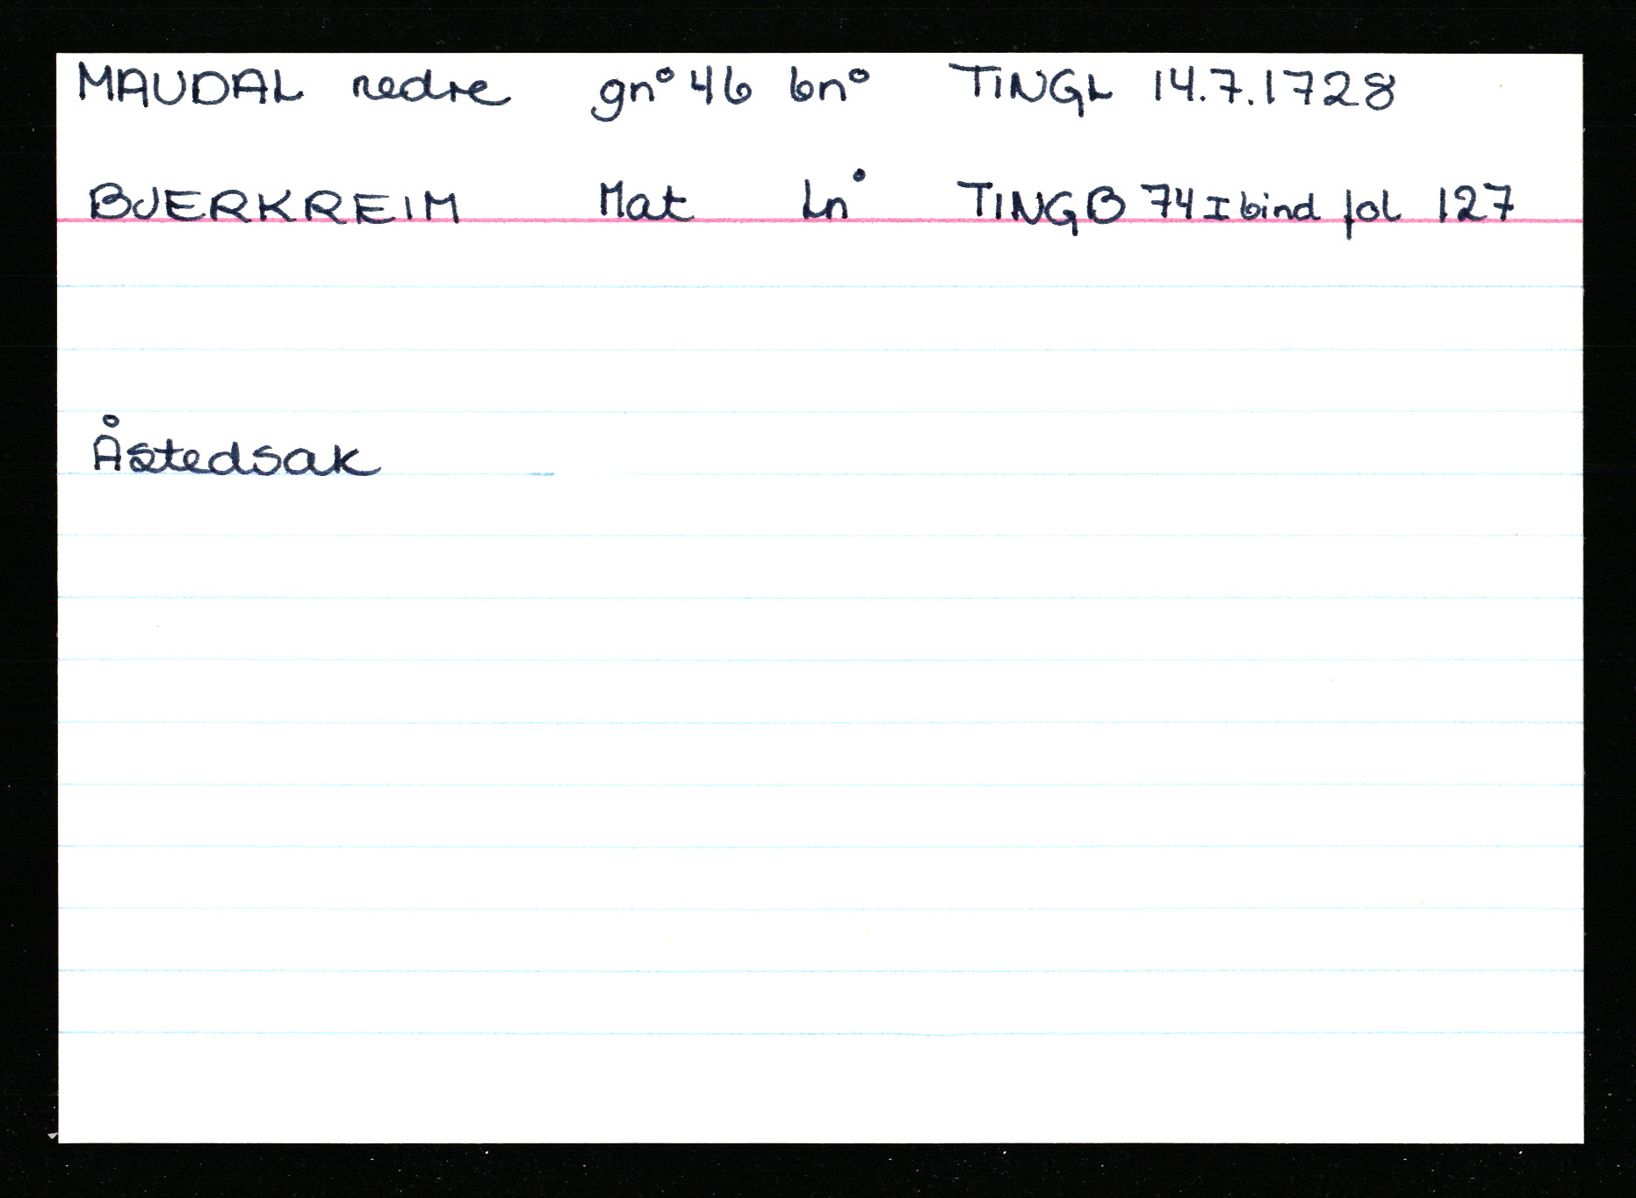 MAUDAL nedre gn° 46 bn° TINGL 14.7.1728
BJERKREIM Mat Ln° TINGB 74 I bind fol 127
Åstedsak